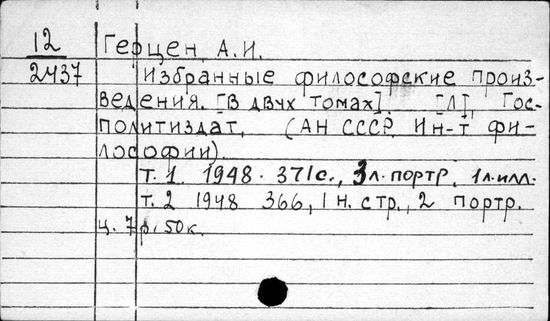 12 Герцен, А.И.
2437 Избранные философские произ-
ведения. [В двух томах]. [Л], Гос-
политиздат, (АН СССР. Ин-т фи-
лософии).
т. 1 1948. 371с., 3л. портр., 1л. илл.
т. 2 1948 366, 1 н. стр., 2 портр.
ц. 7р. 50к.